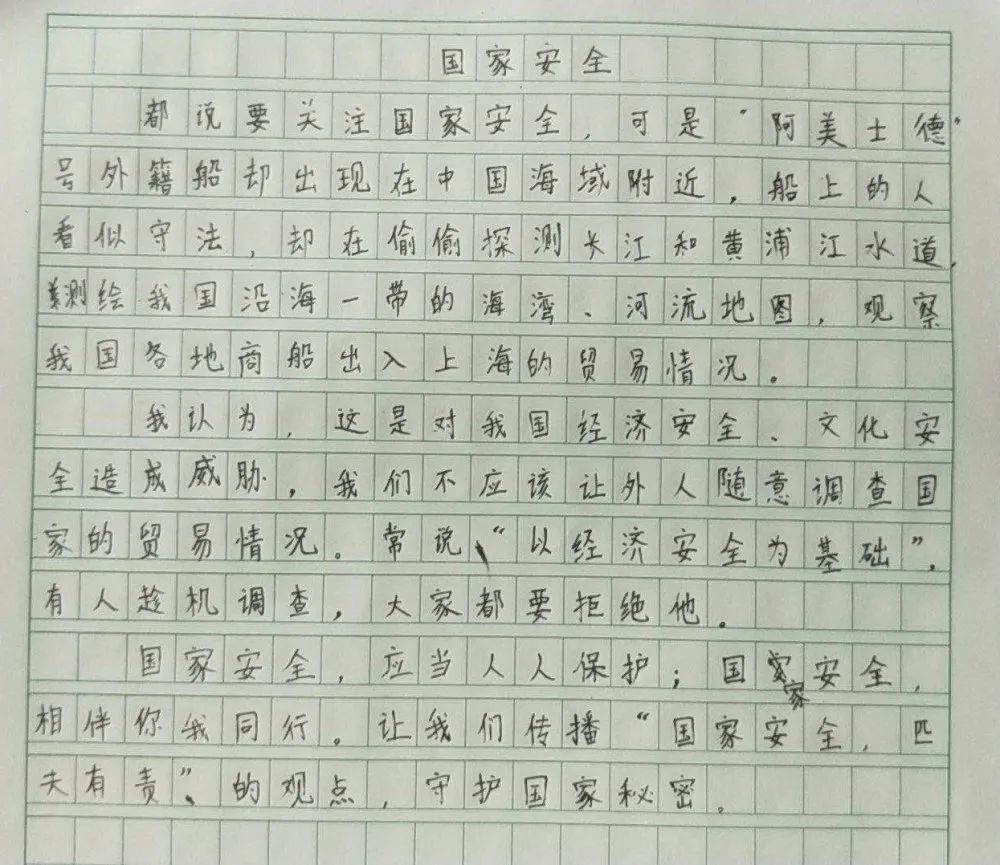 国家安全
都说要关注国家安全，可是“阿美士德”
号外籍船却出现在中国海域附近，船上的人
看似守法，却在偷偷探测长江和黄浦江水道，
测绘我国沿海一带的海湾、河流地图，观察
我国各地商船出入上海的贸易情况。
我认为，这是对我国经济安全、文化安
全造成威胁，我们不应该让外人随意调查国
家的贸易情况。常说“以经济安全为基础”，
有人趁机调查，大家都要拒绝他。
国家安全，应当人人保护；国家安全，
相伴你我同行。让我们传播“国家安全，匹
夫有责”的观点，守护国家秘密。